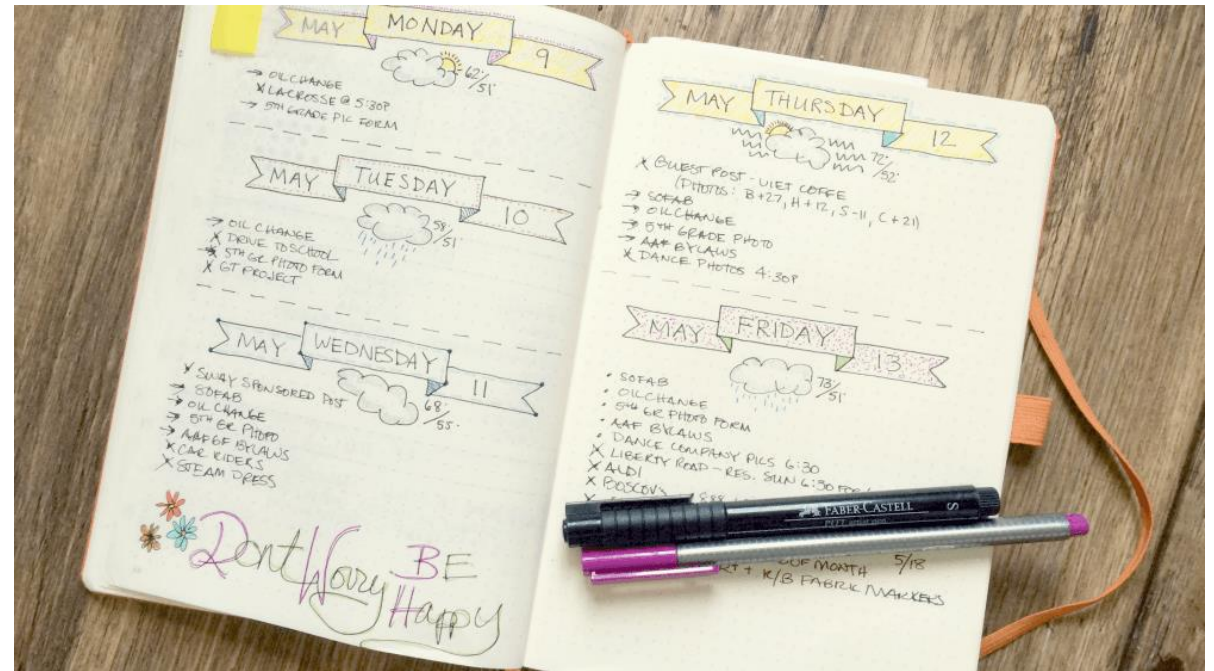 MAY MONDAY 9
62°/51°
→ OIL CHANGE
X LACROSSE @ 5:30P
→ 5TH GRADE PIC FORM
MAY TUESDAY 10
58/51°
→ OIL CHANGE
X DRIVE TO SCHOOL
X 5TH GR PHOTO FORM
X GT PROJECT
MAY WEDNESDAY 11
68°/55°
X SWAY SPONSORED POST
→ SOFAB
→ OIL CHANGE
→ 5TH GR PHOTO
→ AAF GF BYLAWS
X CAR RIDERS
X STEAM DRESS
Dont Worry BE
Happy
MAY THURSDAY 12
72°/52°
X GUEST POST - VIET COFFE
(PHOTOS: B+27, H+12, S-11, C+21)
→ SOFAB
→ OIL CHANGE
→ 5TH GRADE PHOTO
→ AAF BYLAWS
X DANCE PHOTOS 4:30P
MAY FRIDAY 13
73/51°
• SOFAB
• OIL CHANGE
• 5TH GR PHOTO FORM
• AAF BYLAWS
• DANCE COMPANY PICS 6:30
X LIBERTY ROAD - RES. SUN 6:30 FOR
X ALDI
X BOSCOV
FABER-CASTELL
PITT artist pen
S
OF MONTH 5/18
+ K/B FABRIC MARKERS